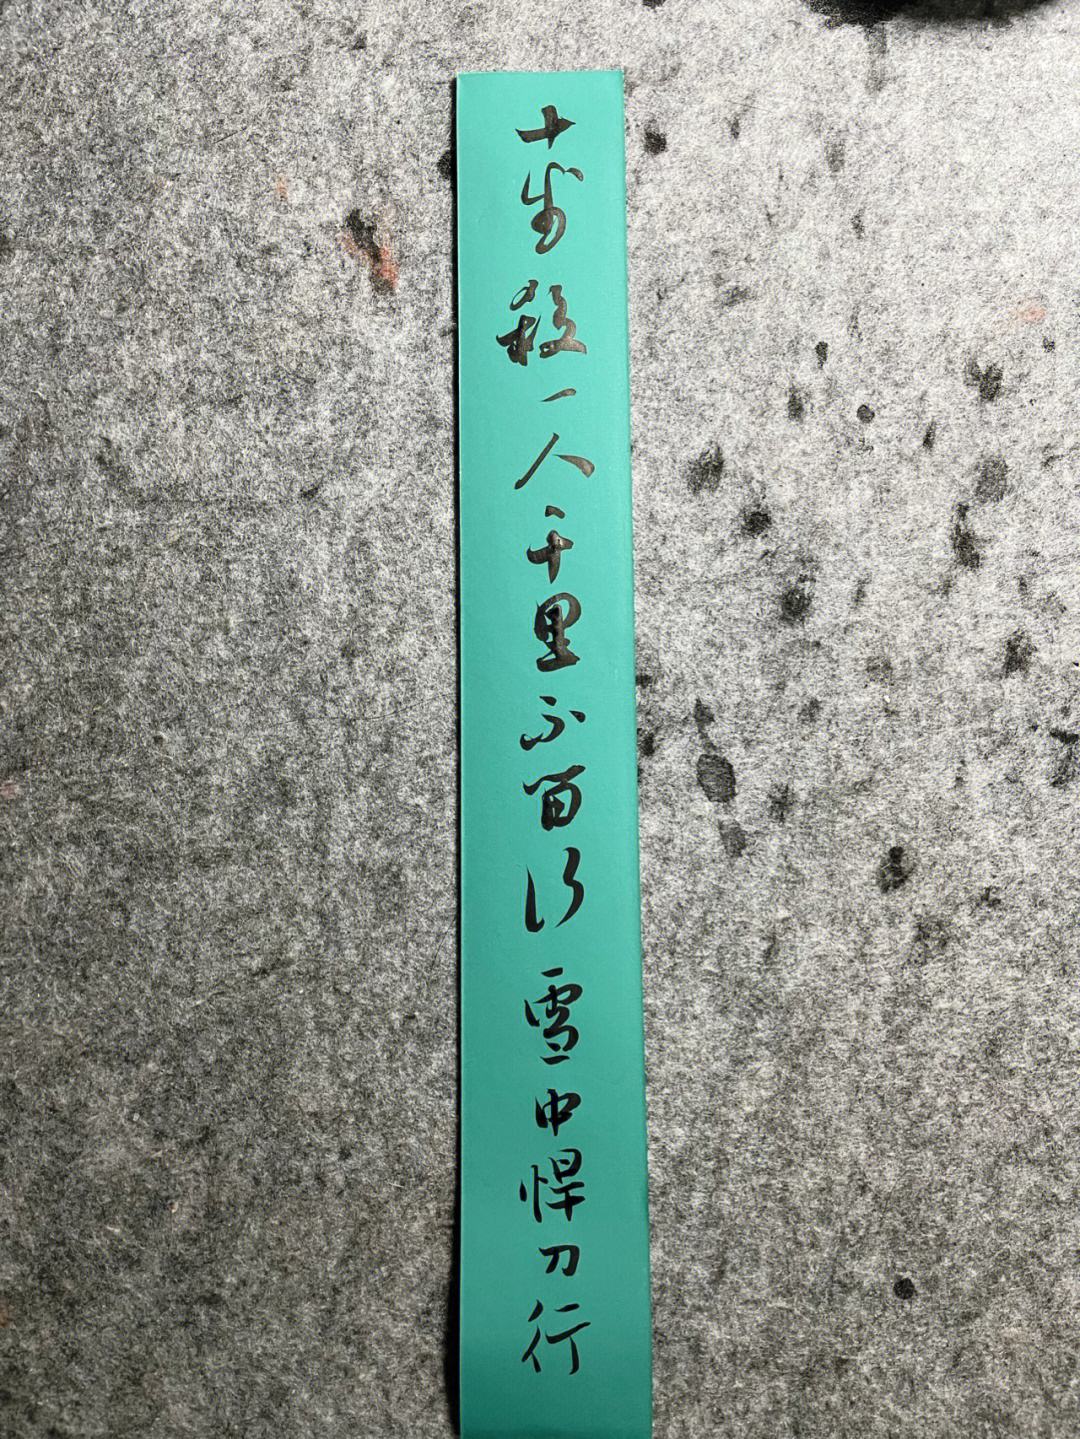 十步殺一人千里不留行 雪中悍刀行